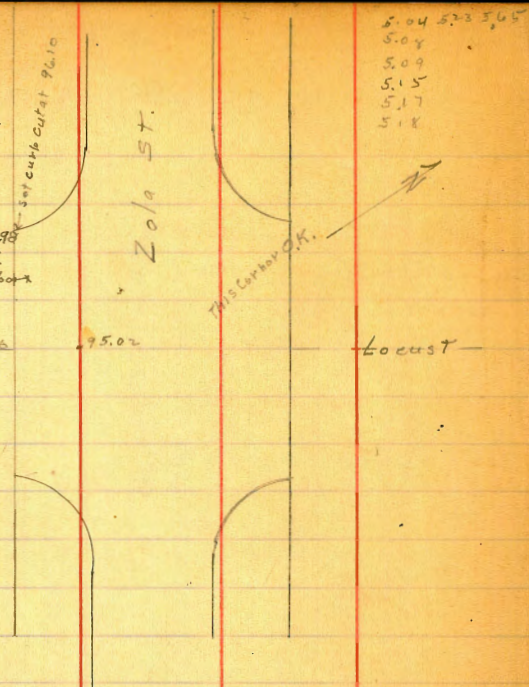 5.04 5.23 5.65
5.08
5.09
5.15
5.17
5.18
set curb cut at 96.10
Zola St.
N
This Corner O.K.
98
95.02
Locust